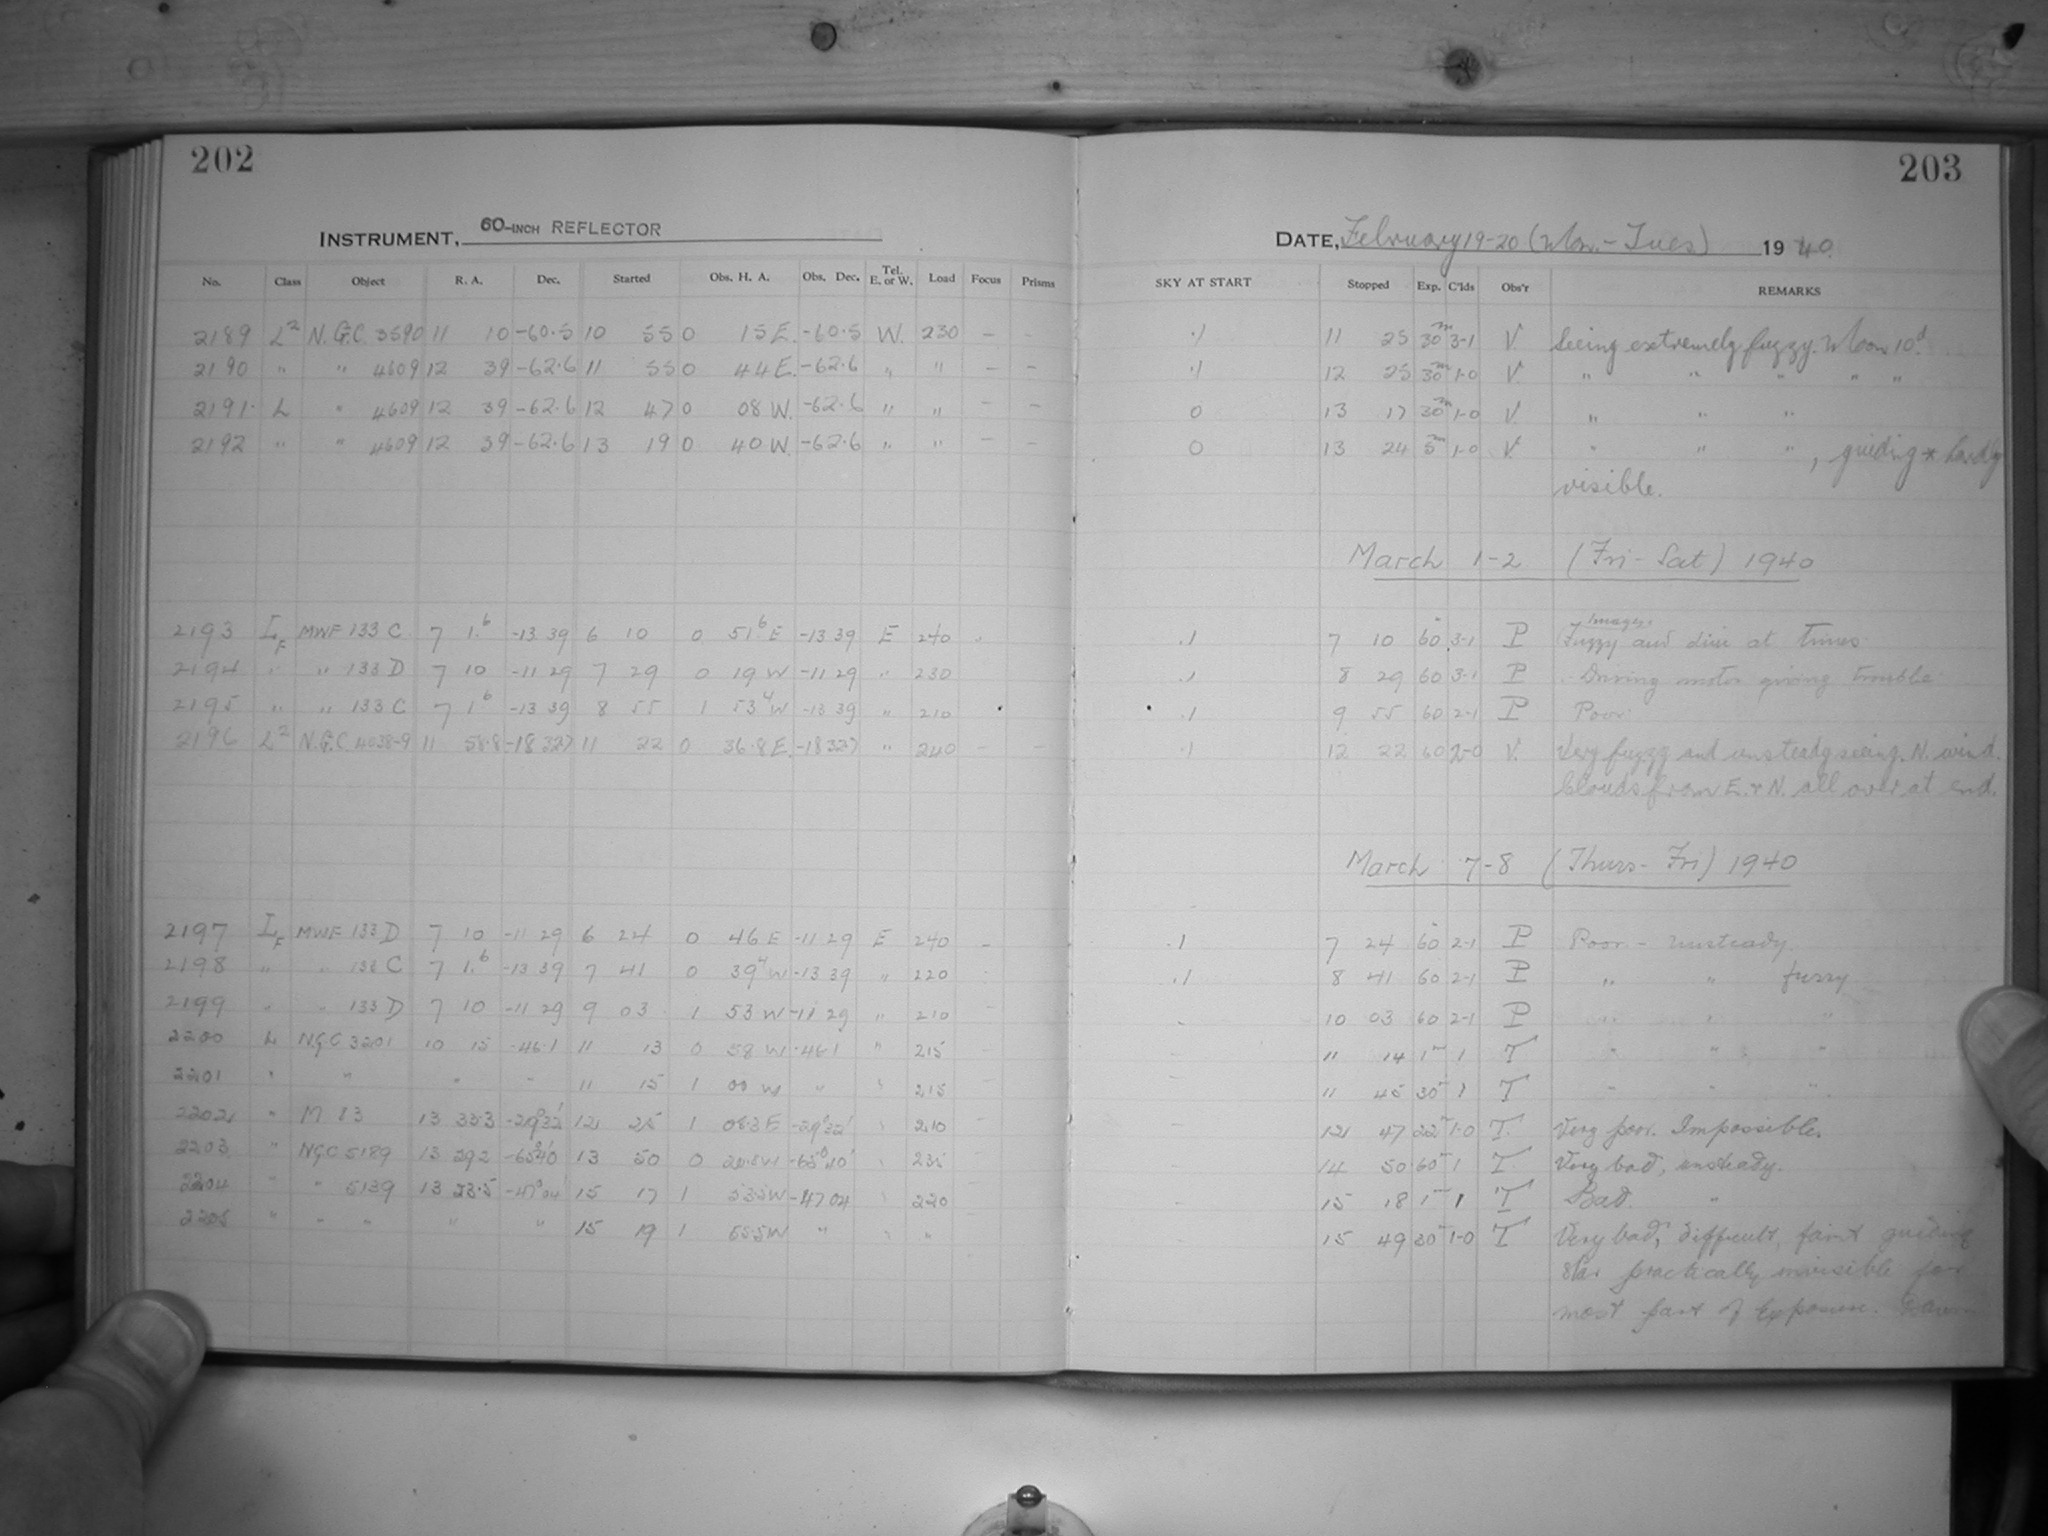 202
203
INSTRUMENT, 60-INCH REFLECTOR
DATE, February 19-20 (Mon.-Tues) 1940.
No. Class Object R. A. Dec. Started Obs. H. A. Obs. Dec. Tel. E. or W. Load Focus Prisms SKY AT START Stopped Exp. C'lds Obs'r REMARKS
2189 L2 N.G.C. 3590 11 10 -60.5 10 55 0 15 E. -60.5 W. 230 - - .1 11 25 30m 3-1 V. Seeing extremely fuzzy. Moon 10d.
2190 " " 4609 12 39 -62.6 11 55 0 44 E. -62.6 " " - - .1 12 25 30m 1-0 V. " " " " "
2191. L " 4609 12 39 -62.6 12 47 0 08 W. -62.6 " " - - 0 13 17 30m 1-0 V. " " "
2192 " " 4609 12 39 -62.6 13 19 0 40 W. -62.6 " " - - 0 13 24 5m 1-0 V. " " ", guiding * hardly
visible.
March 1-2 (Fri-Sat) 1940
2193 IF MWF 133 C 7 1.6 -13 39 6 10 0 51.6 E -13 39 E 240 .1 7 10 60 3-1 P Images. Fuzzy and dim at times.
2194 " " 133 D 7 10 -11 29 7 29 0 19 W -11 29 " 230 .1 8 29 60 3-1 P Driving motor giving trouble
2195 " " 133 C 7 1.6 -13 39 8 55 1 53.4 W -13 39 " 210 .1 9 55 60 2-1 P Poor
2196 L2 N.G.C. 4038-9 11 58.8 -18 327 11 22 0 36.8 E. -18 327 " 240 - - .1 12 22 60 2-0 V. Very fuzzy and unsteady seeing. N. wind.
Clouds from E. + N. all over at end.
March 7-8 (Thurs-Fri) 1940
2197 IF MWF 133 D 7 10 -11 29 6 24 0 46 E -11 29 E 240 - .1 7 24 60 2-1 P Poor - unsteady.
2198 " " 133 C 7 1.6 -13 39 7 41 0 39.4 W -13 39 " 220 .1 8 41 60 2-1 P " " fuzzy
2199 " " 133 D 7 10 -11 29 9 03 1 53 W -11 29 " 210 - 10 03 60 2-1 P " " "
2200 L NGC 3201 10 15 -46.1 11 13 0 58 W -46.1 " 215 - 11 14 1m 1 T " " "
2201 " " " " 11 15 1 00 W " " 215 - 11 45 30m 1 T " " "
2202 " M 83 13 33.3 -29°32' 12 25 1 08.3 E -29°32' " 210 - 12 47 22m 1-0 T. Very poor. Impossible.
2203 " NGC 5189 13 29.2 -65°40' 13 50 0 W -65°40' " 235 - 14 50 60m 1 T Very bad, unsteady.
2204 " " 5139 13 23.5 -47°04' 15 17 1 53.5 W -47 04 " 220 - 15 18 1m 1 T Bad. "
2205 " " " " " 15 19 1 55.5 W " " " 15 49 30m 1-0 T Very bad, difficult, faint guiding
star practically invisible for
most part of exposure. Dawn